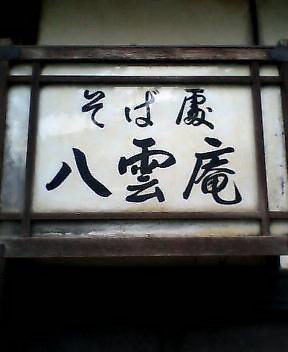 そば處
八雲庵